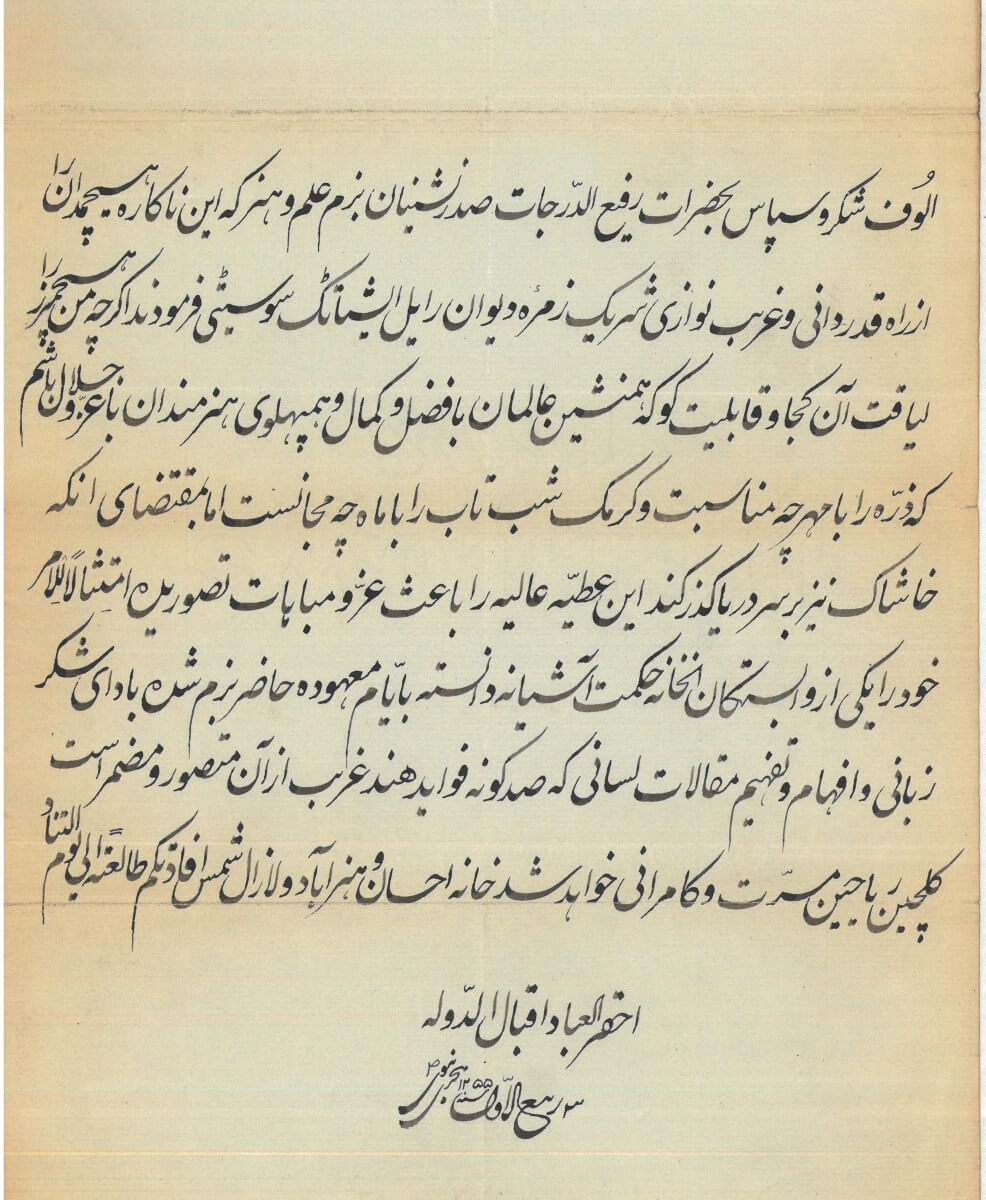 الُوف شکر و سپاس بحضرات رفیع الدّرجات صدر نشینان بزم علم و هنر که این ناکاره هیچمدان را
از راه قدردانی و غریب نوازی شریک زمرهٔ دیوان رایل ایشیاٹک سوسیٹی فرمودند اگرچه من هیچمرز را
لیاقت آن کجا و قابلیت کو که همنشین عالمان با فضل و کمال و همپهلوی هنرمندان با عزّ و جلال باشم
که ذرّه را با مهر چه مناسبت و کرمک شب تاب را با ماه چه مجانست اما بمقتضای انکه
خاشاک نیز بر سر دریا گذر کند این عطیّه عالیه را باعث عزّ و مباهات تصوریده امتثالاً للامر
خود را یکی از وابستگان انخانه حکمت آشیانه دانسته بایّام معهوده حاضر بزم شده بادای شکر
زبانی و افهام و تفهیم مقالات لسانی که صد گونه فواید هند غریب از آن متصور و مضمر است
گلچین ریاحین مسرّت و کامرانی خواهد شد خانه احسان و هنر آباد و لازال شمس افادتکم طالعةً الی یوم التناد
احقر العباد اقبال الدّوله
۳ ربیع الاوّل سنه ۱۲۵۵ هجری نبوی